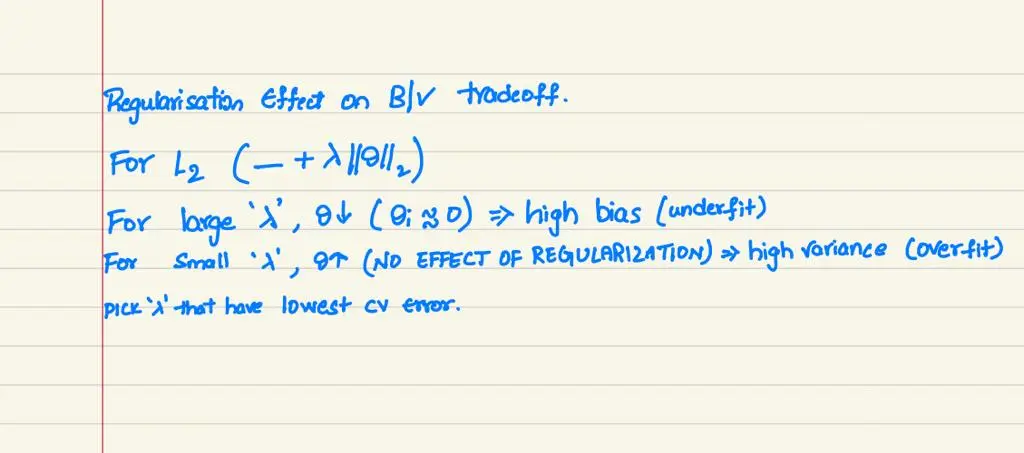 Regularisation Effect on B/V tradeoff.
For L₂ (— + λ||θ||₂)
For large 'λ', θ↓ (θi ≈ 0) ⇒ high bias (underfit)
For small 'λ', θ↑ (NO EFFECT OF REGULARIZATION) ⇒ high variance (overfit)
PICK 'λ' that have lowest cv error.